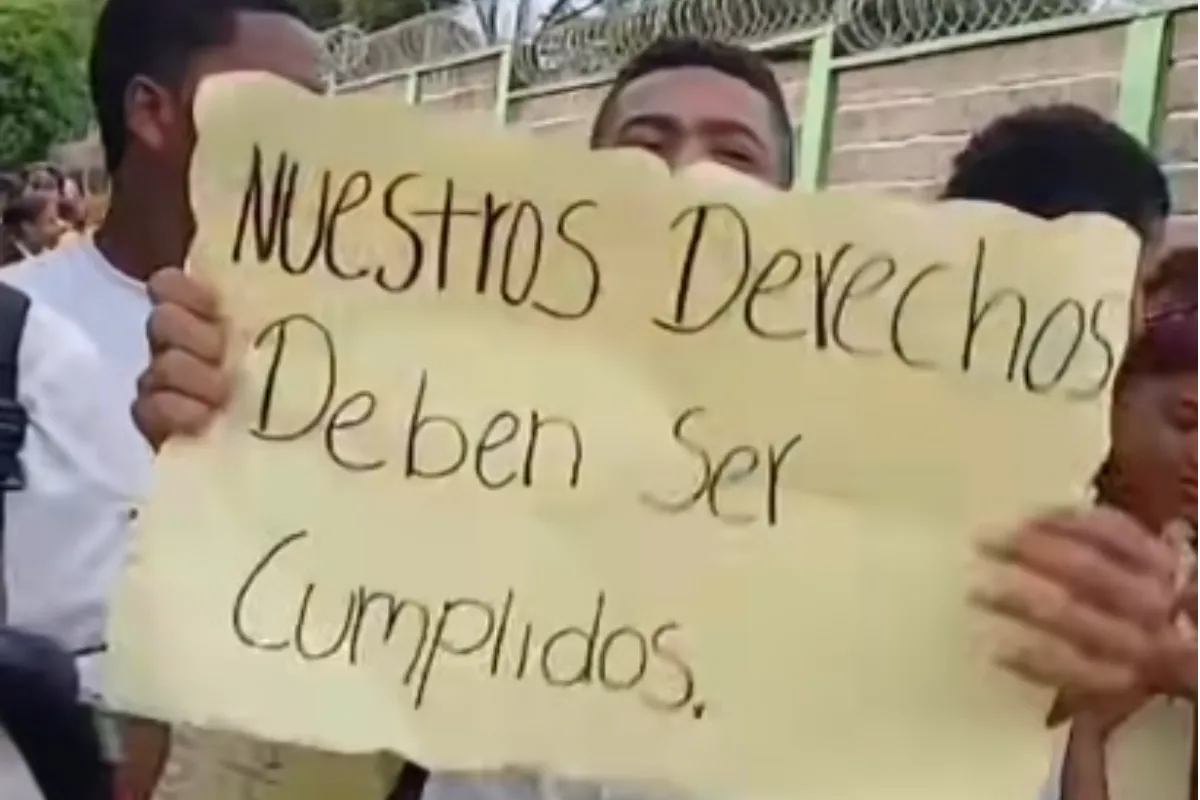 Nuestros Derechos
Deben Ser
Cumplidos.